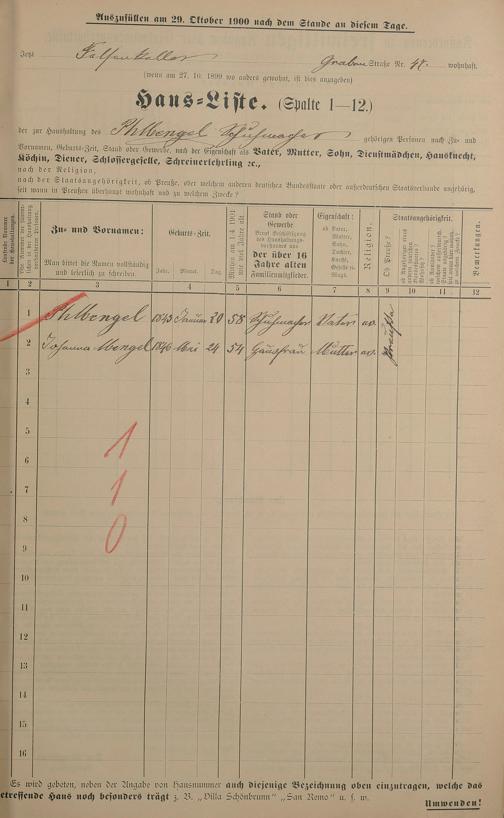 Auszufüllen am 29. Oktober 1900 nach dem Stande an diesem Tage.
Jetzt Felsenkeller Graben Straße Nr. 48. wohnhaft.
(wenn am 27. 10. 1899 wo anders gewohnt, ist dies anzugeben)
Haus-Liste. (Spalte 1—12.)
der zur Haushaltung des Ph Mengel Schuhmacher gehörigen Personen nach Zu- und
Vornamen, Geburts-Zeit, Stand oder Gewerbe, nach der Eigenschaft als Vater, Mutter, Sohn, Dienstmädchen, Hausknecht,
Köchin, Diener, Schlossergeselle, Schreinerlehrling ꝛc.,
nach der Religion,
nach der Staatsangehörigkeit, ob Preuße, oder welchem anderen deutschen Bundesstaate oder außerdeutschen Staatsverbande angehörig,
seit wann in Preußen überhaupt wohnhaft und zu welchem Zwecke?
Zu- und Vornamen:
Man bittet die Namen vollständig
und leserlich zu schreiben.
Geburts-Zeit.
Jahr. Monat. Tag.
Mithin am 1.4.1901
wie viel Jahre alt.
Stand oder
Gewerbe
der über 16
Jahre alten
Familienmitglieder.
Eigenschaft:
ob Vater,
Mutter,
Sohn,
Tochter,
Knecht,
Geselle
Religion.
Staatsangehörigkeit.
Ob Preuße?
Bemerkungen.
1 2 3 4 5 6 7 8 9 10 11 12
1 Ph Mengel 1843 Januar 20 58 Schuhmacher Vater ev. Preuße
2 Johanna Mengel 1846 Mai 24 54 Hausfrau Mutter ev.
3
4
5
1
6
7
1
8
0
9
10
11
12
13
14
15
16
Es wird gebeten, neben der Angabe von Hausnummer auch diejenige Bezeichnung oben einzutragen, welche das
etreffende Haus noch besonders trägt z. B. „Villa Schönbrunn" „San Remo" u. s. w.
Umwenden!